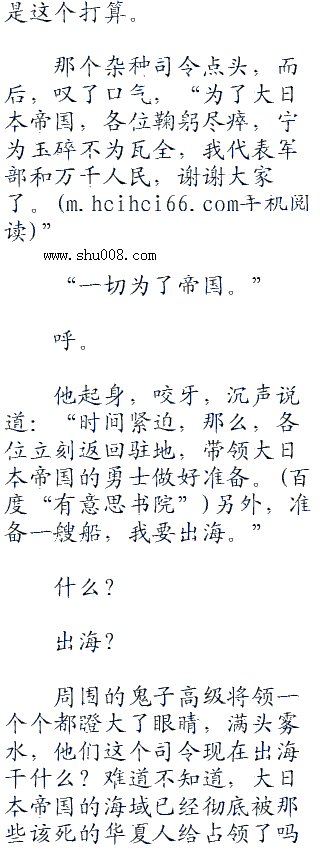 是这个打算。
那个杂种司令点头，而
后，叹了口气，“为了大日
本帝国，各位鞠躬尽瘁，宁
为玉碎不为瓦全，我代表军
部和万千人民，谢谢大家
了。(m.hcihci66.com手机阅
读)”
www.shu008.com
“一切为了帝国。”
呼。
他起身，咬牙，沉声说
道：“时间紧迫，那么，各
位立刻返回驻地，带领大日
本帝国的勇士做好准备。(百
度“有意思书院”)另外，准
备一艘船，我要出海。”
什么？
出海？
周围的鬼子高级将领一
个个都瞪大了眼睛，满头雾
水，他们这个司令现在出海
干什么？难道不知道，大日
本帝国的海域已经彻底被那
些该死的华夏人给占领了吗